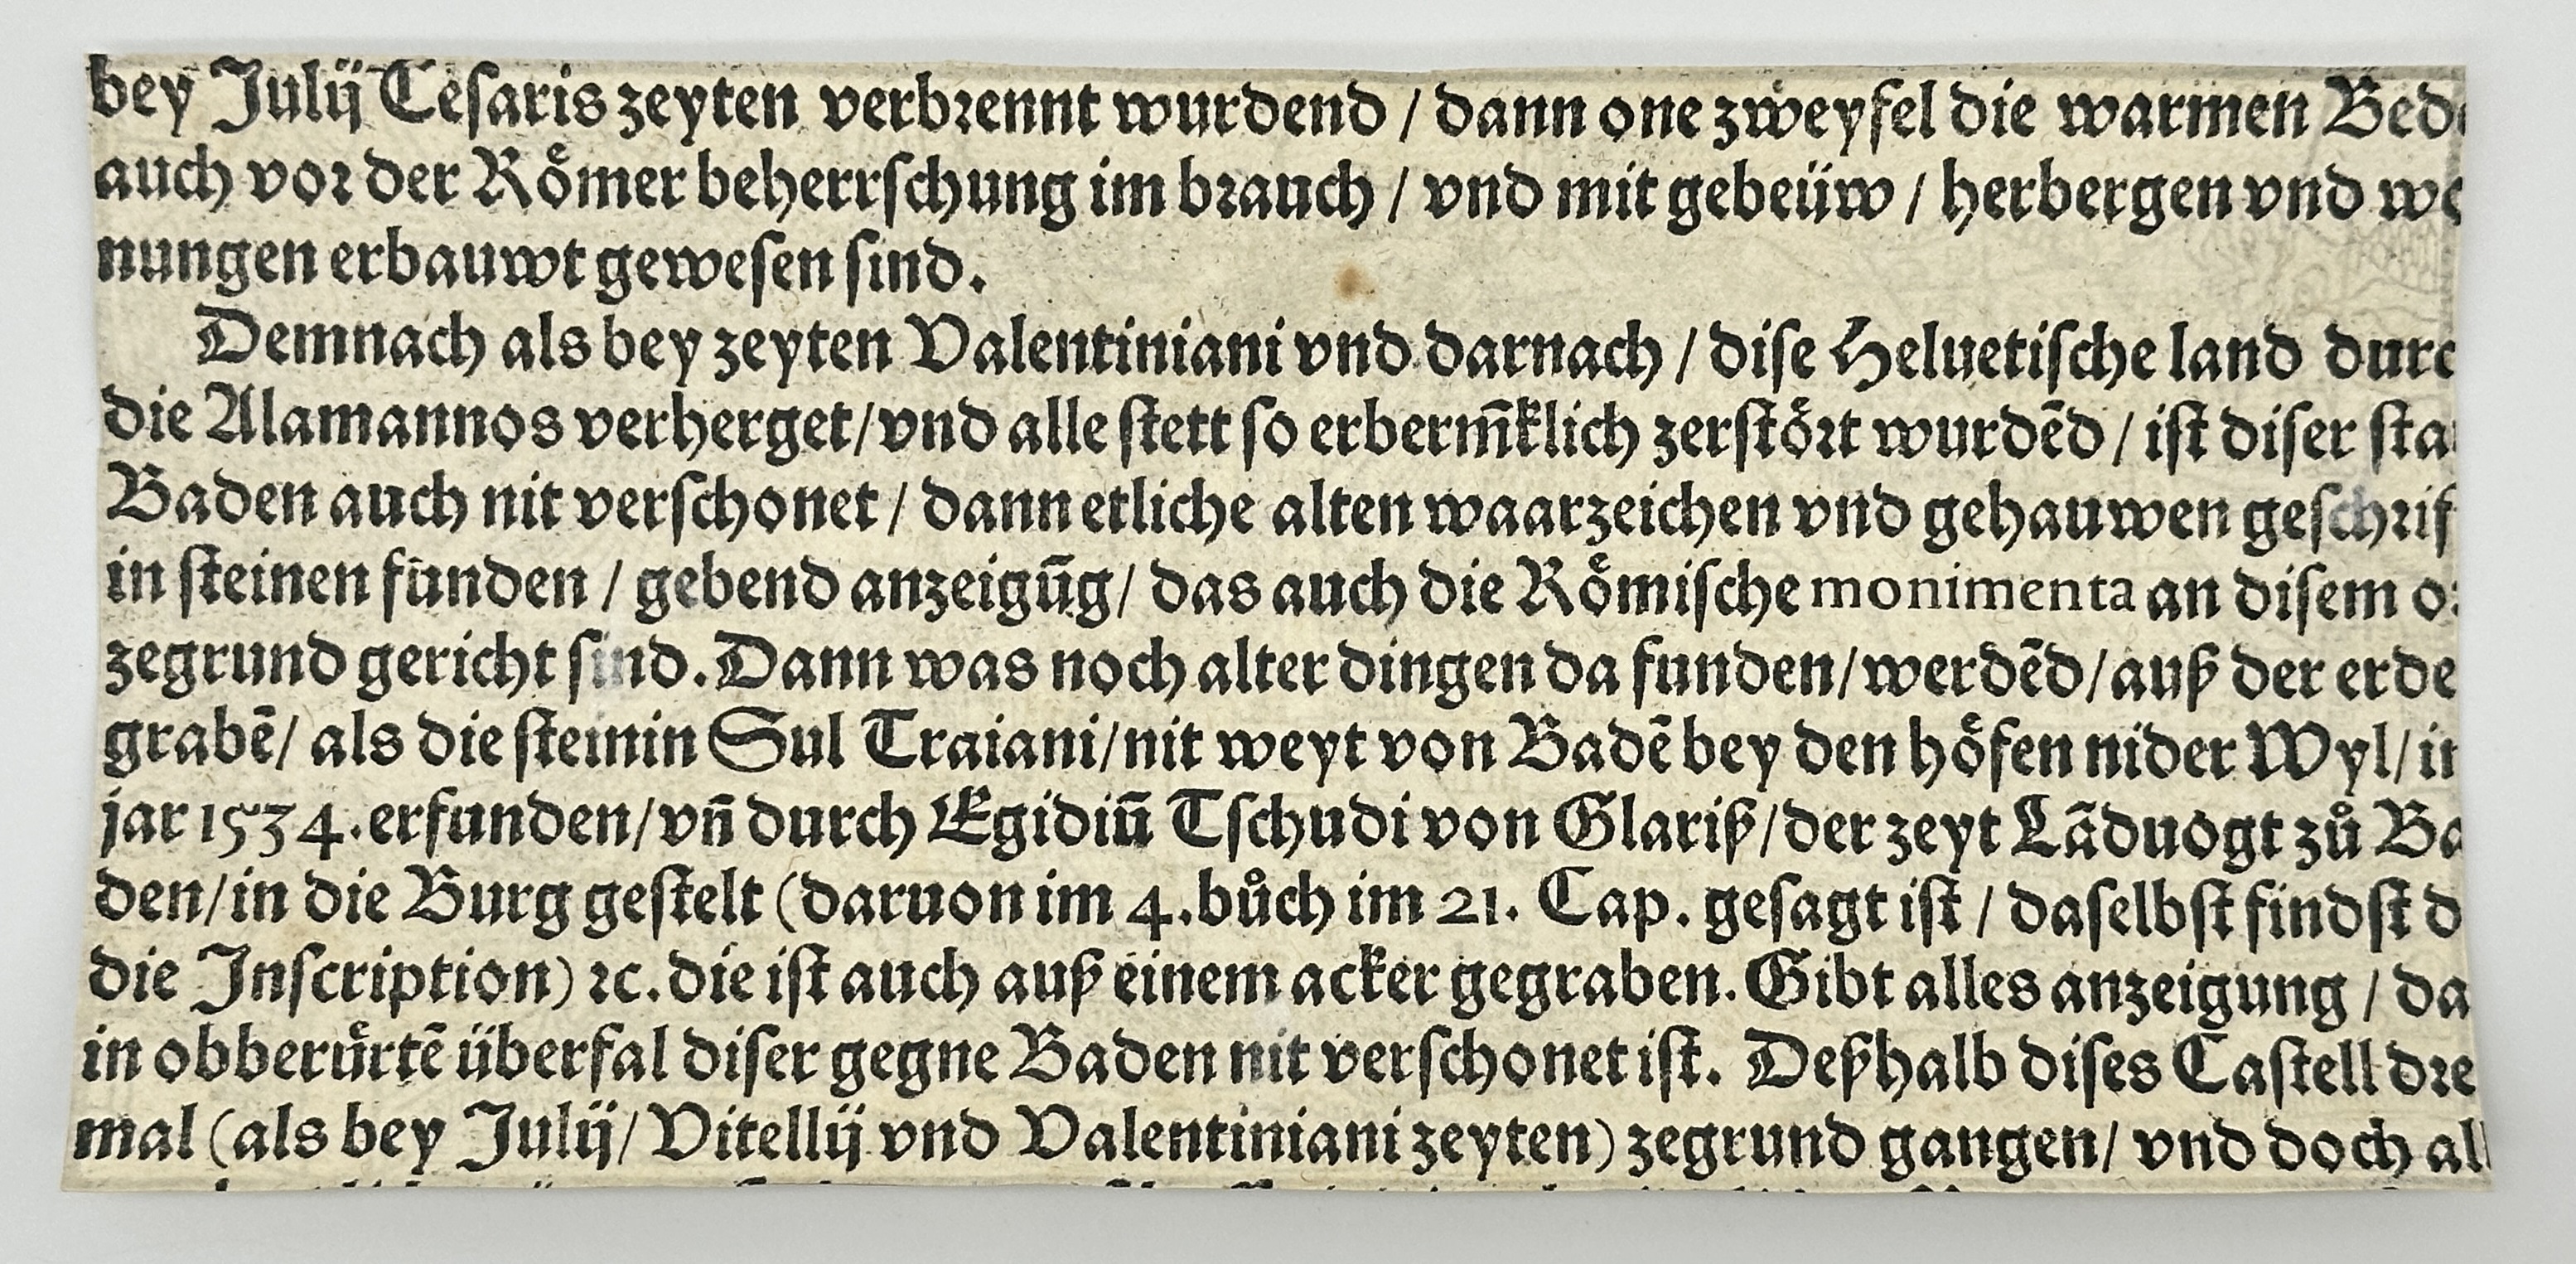 bey Julij Cesaris zeyten verbrennt wurdend / dann one zweyfel die warmen Bede
auch vor der Roͤmer beherrschung im brauch / vnd mit gebeüw / herbergen vnd wo
nungen erbauwt gewesen sind.
Demnach als bey zeyten Valentiniani vnd darnach / dise Heluetische land durc
die Alamannos verherget/vnd alle stett so erberm̄klich zerstoͤrt wurdēd / ist diser sta
Baden auch nit verschonet / dann etliche alten waarzeichen vnd gehauwen geschrif
in steinen funden / gebend anzeigūg/ das auch die Roͤmische monimenta an disem or
zegrund gericht sind. Dann was noch alter dingen da funden/werdēd/auß der erde
grabē/ als die steinin Sul Traiani/nit weyt von Badē bey den hoͤfen nider Wyl/ im
jar 1534. erfunden/vn̄ durch Egidiū Tschudi von Glariß/der zeyt Lāduogt zů Ba
den/in die Burg gestelt (daruon im 4. bůch im 21. Cap. gesagt ist / daselbst findst d
die Inscription) ꝛc. die ist auch auß einem acker gegraben. Gibt alles anzeigung / da
in obberuͤrtē überfal diser gegne Baden nit verschonet ist. Deßhalb dises Castell dre
mal (als bey Julij/ Vitellij vnd Valentiniani zeyten) zegrund gangen/ vnd doch all